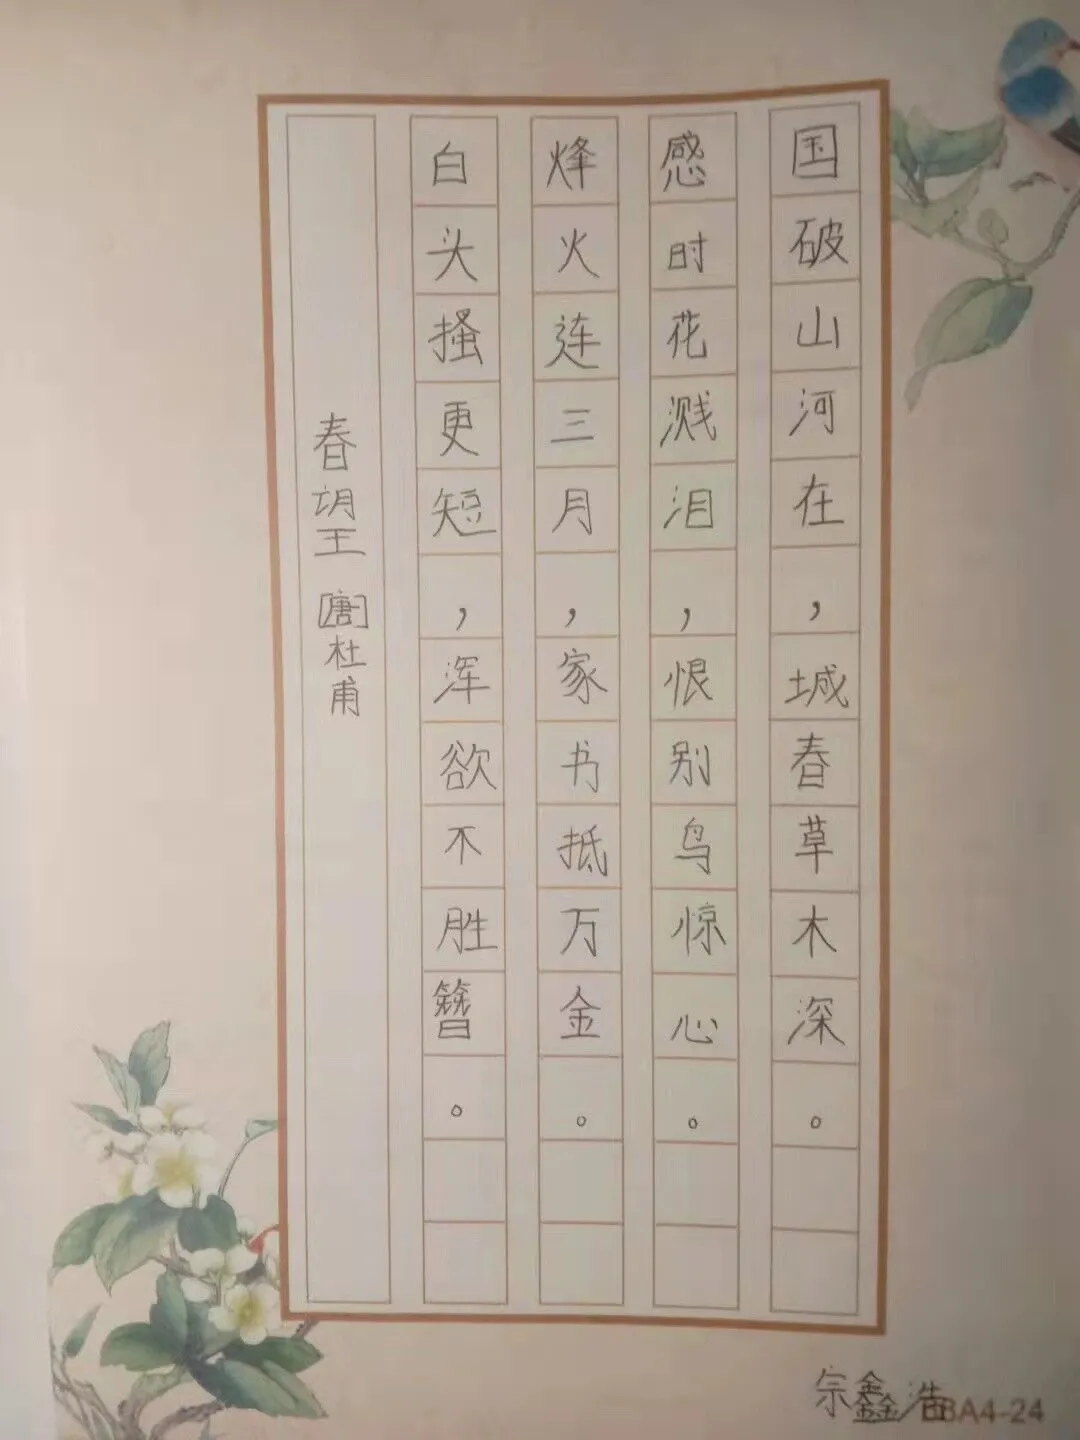 国破山河在，城春草木深。
感时花溅泪，恨别鸟惊心。
烽火连三月，家书抵万金。
白头搔更短，浑欲不胜簪。
春望 [唐]杜甫
宗鑫浩
BA4-24